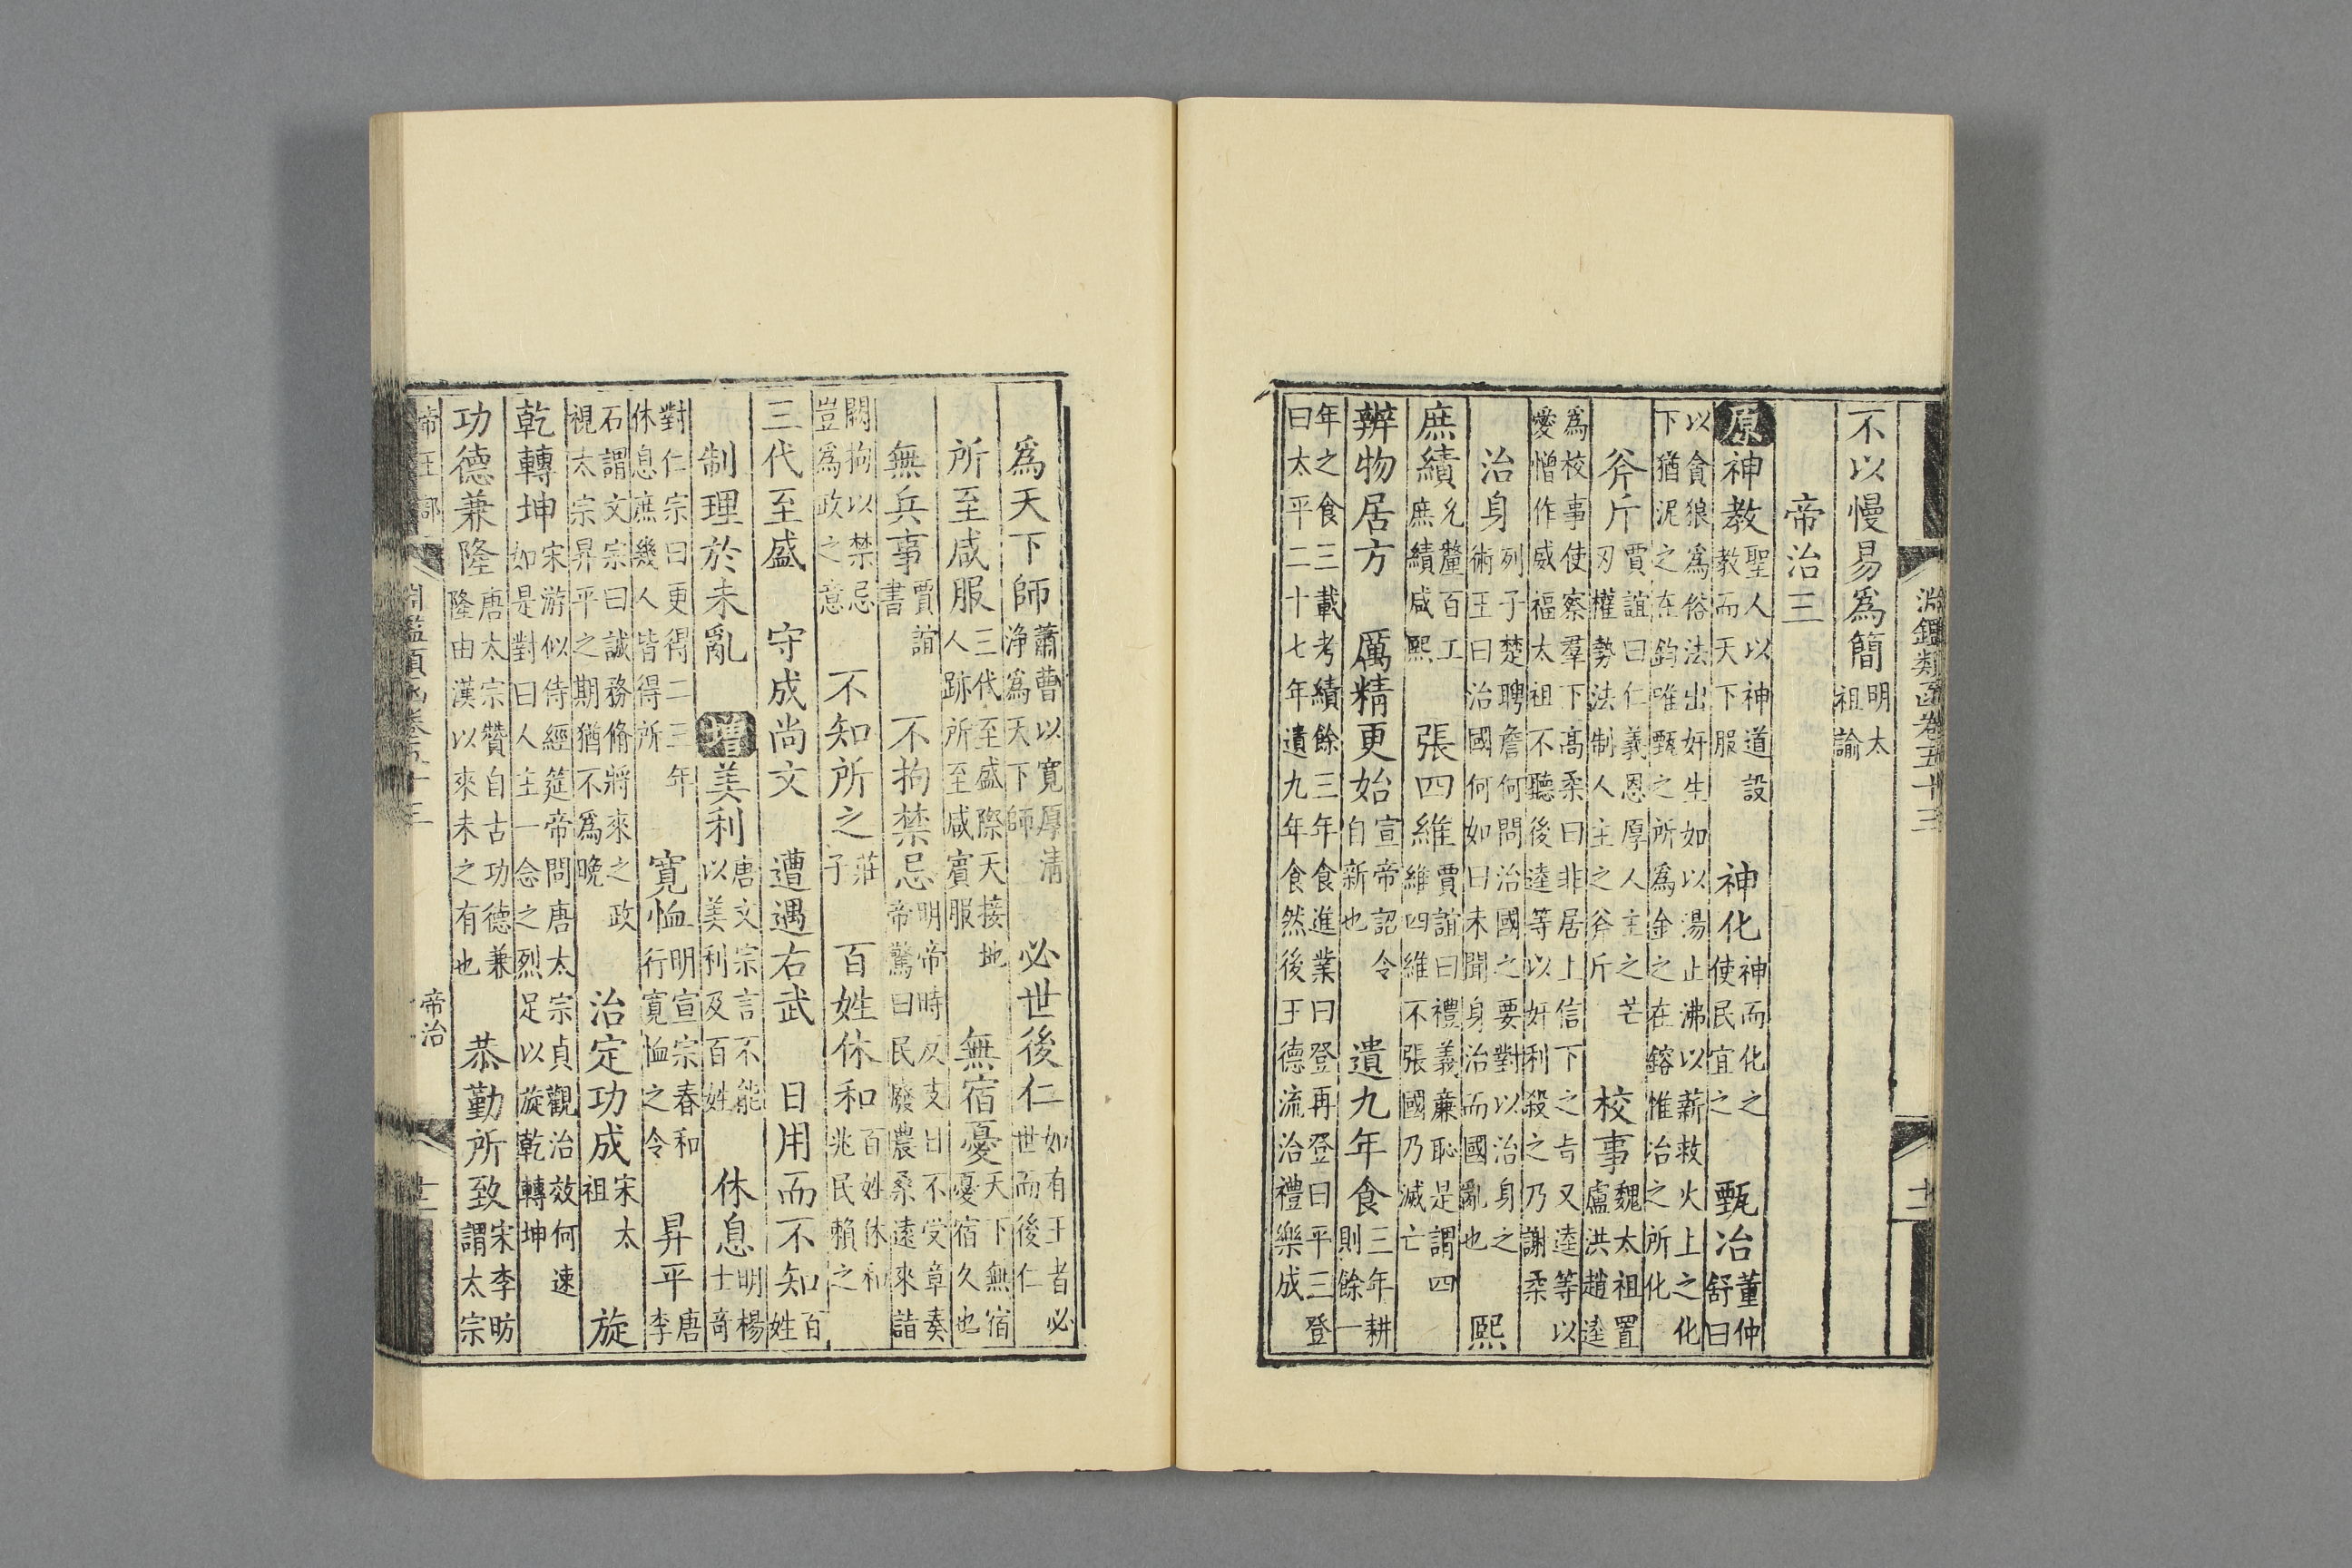 淵鑑類函卷五十三 十二
不以慢易爲簡 明太祖諭
帝治三
原 神教 聖人以神道設教而天下服 神化 神而化之使民宜之 甄冶 董仲舒曰
以貪狼爲俗法出奸生如以湯止沸以薪救火上之化下猶泥之在鈞唯甄之所爲金之在鎔惟冶之所化
斧斤 賈誼曰仁義恩厚人主之芒刃權勢法制人主之斧斤 校事 魏太祖置盧洪趙逵
爲校事使察羣下高柔曰非居上信下之旨又逵等以愛憎作威福太祖不聽後逵等以奸利殺之乃謝柔
治身 列子楚聘詹何問治國之要對以治身之術王曰治國何如曰未聞身治而國亂也 熙
庶績 允釐百工庶績咸熙 張四維 賈誼曰禮義亷恥是謂四維四維不張國乃滅亡
辨物居方 厲精更始 宣帝詔令自新也 遺九年食 三年耕則餘一
年之食三載考績餘三年食進業曰登再登曰平三登曰太平二十七年遺九年食然後王德流洽禮樂成
爲天下師 蕭曹以寬厚清淨爲天下師 必世後仁 如有王者必世而後仁
所至咸服 三代至盛際天接地人跡所至咸賓服 無宿憂 天下無宿憂宿久也
無兵事 賈誼書 不拘禁忌 明帝時反支日不受章奏帝驚曰民廢農桑遠來詣
闕拘以禁忌豈爲政之意 不知所之 莊子 百姓休和 百姓休和兆民賴之
三代至盛 守成尚文 遭遇右武 日用而不知 百姓
制理於未亂 增 美利 唐文宗言不能以美利及百姓 休息 明楊士奇
對仁宗曰更得二三年休息庶幾人皆得所 寬恤 明宣宗春和行寬恤之令 昇平 唐李
石謂文宗曰誠務脩將來之政視太宗昇平之期猶不爲晚 治定功成 宋太祖 旋
乾轉坤 宋游似侍經筵帝問唐太宗貞觀治效何速如是對曰人主一念之烈足以旋乾轉坤
功德兼隆 唐太宗贊自古功德兼隆由漢以來未之有也 恭勤所致 宋李昉謂太宗
帝王部 淵鑑類函卷五十三 帝治 十二